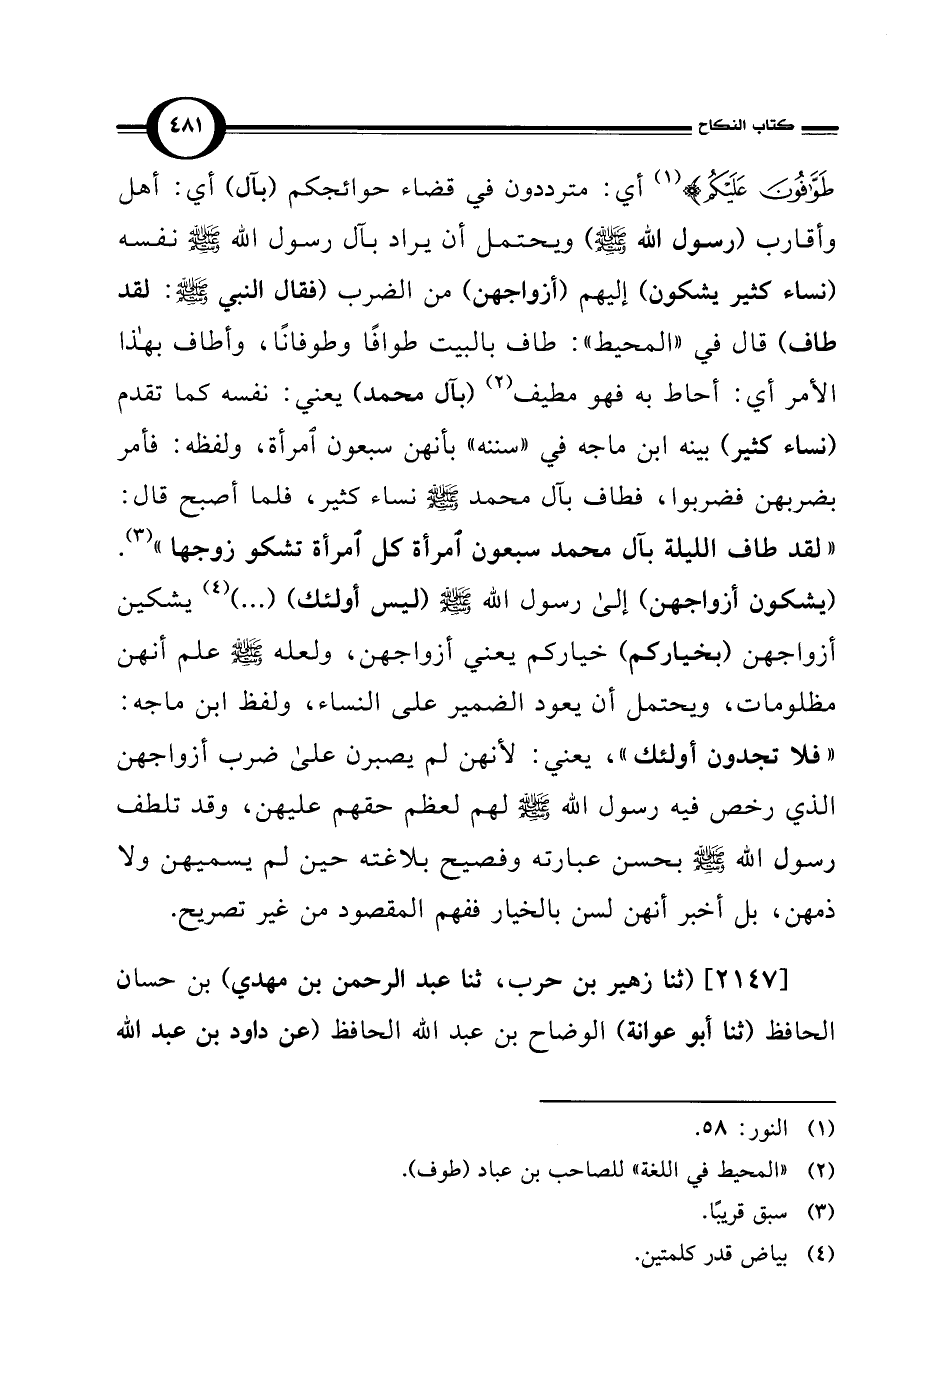 كتاب النكاح
٤٨١
طَوَّافُونَ عَلَيْكُم﴾(١) أي: مترددون في قضاء حوائجكم (بآل) أي: أهل
وأقارب (رسول الله ﷺ) ويحتمل أن يراد بآل رسول الله ﷺ نفسه
(نساء كثير يشكون) إليهم (أزواجهن) من الضرب (فقال النبي ﷺ: لقد
طاف) قال في «المحيط»: طاف بالبيت طوافًا وطوفانًا، وأطاف بهذا
الأمر أي: أحاط به فهو مطيف(٢) (بآل محمد) يعني: نفسه كما تقدم
(نساء كثير) بينه ابن ماجه في «سننه» بأنهن سبعون ٱمرأة، ولفظه: فأمر
بضربهن فضربوا، فطاف بآل محمد ﷺ نساء كثير، فلما أصبح قال:
«لقد طاف الليلة بآل محمد سبعون ٱمرأة كل ٱمرأة تشكو زوجها»(٣).
(يشكون أزواجهن) إلىٰ رسول الله ﷺ (ليس أولئك) (...)(٤) يشكين
أزواجهن (بخياركم) خياركم يعني أزواجهن، ولعله ﷺ علم أنهن
مظلومات، ويحتمل أن يعود الضمير على النساء، ولفظ ابن ماجه:
«فلا تجدون أولئك»، يعني: لأنهن لم يصبرن علىٰ ضرب أزواجهن
الذي رخص فيه رسول الله ﷺ لهم لعظم حقهم عليهن، وقد تلطف
رسول الله ﷺ بحسن عبارته وفصيح بلاغته حين لم يسميهن ولا
ذمهن، بل أخبر أنهن لسن بالخيار ففهم المقصود من غير تصريح.
[٢١٤٧] (ثنا زهير بن حرب، ثنا عبد الرحمن بن مهدي) بن حسان
الحافظ (ثنا أبو عوانة) الوضاح بن عبد الله الحافظ (عن داود بن عبد الله
(١) النور: ٥٨.
(٢) «المحيط في اللغة» للصاحب بن عباد (طوف).
(٣) سبق قريبًا.
(٤) بياض قدر كلمتين.